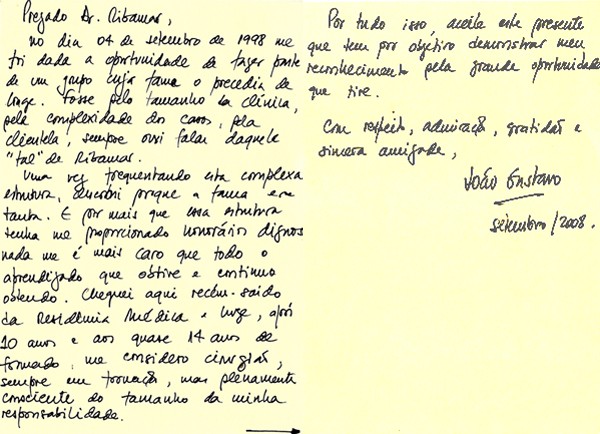 Prezado Dr. Ribamar,
no dia 04 de setembro de 1998 me
foi dada a oportunidade de fazer parte
de um grupo cuja fama o precedia de
longe. Fosse pelo tamanho da clínica,
pela complexidade dos casos, pela
clientela, sempre ouvi falar daquele
"tal" de Ribamar.
Uma vez frequentando esta complexa
estrutura, descobri porque a fama era
tanta. E por mais que essa estrutura
tenha me proporcionado honorários dignos
nada me é mais caro que todo o
aprendizado que obtive e continuo
obtendo. Cheguei aqui recém-saído
da Residência Médica e hoje, após
10 anos e aos quase 14 anos de
formado, me considero cirurgião,
sempre em formação, mas plenamente
consciente do tamanho da minha
responsabilidade.
Por tudo isso, aceite este presente
que tem por objetivo demonstrar meu
reconhecimento pela grande oportunidade
que tive.
Com respeito, admiração, gratidão e
sincera amizade,
João Gustavo
setembro/2008.